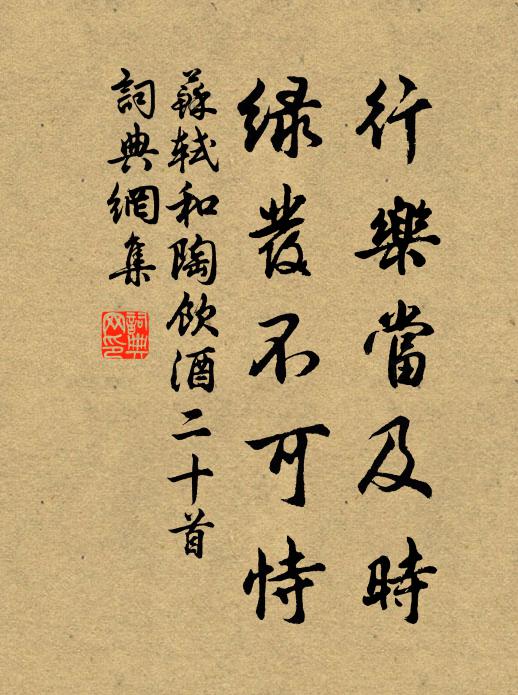 行樂當及時
緑發不可恃
蘇軾和陶飲酒二十首
詞典網集
詞典网印